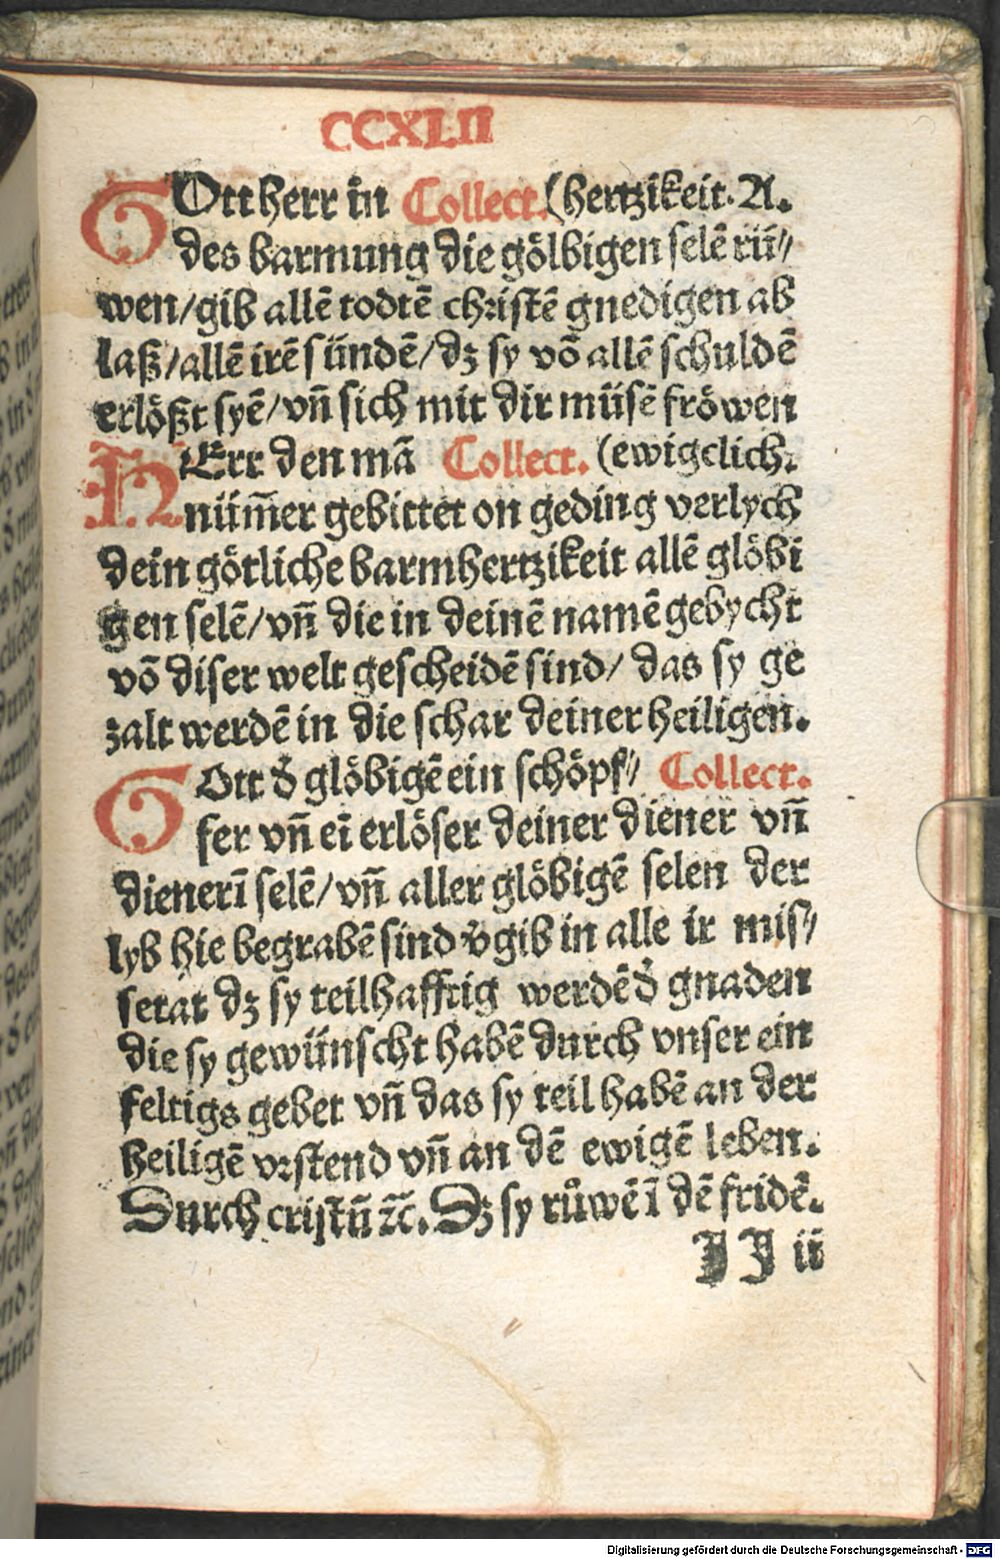 CCXLII
GOtt herr in Collect. (hertzikeit. A.
des barmung die gölbigen selē rü⸗
wen/gib allē todtē christē gnedigen ab
laß/allē irē sündē/dz sy vō allē schuldē
erlößt syē/vn̄ sich mit dir müsē fröwen
HErr den mā Collect. (ewigclich.
nüm̄er gebittet on geding verlych
dein götliche barmhertzikeit allē glöbi
gen selē/vn̄ die in deinē namē gebycht
vō diser welt gescheidē sind/ das sy ge
zalt werdē in die schar deiner heiligen.
GOtt d̓ glöbigē ein schöpf⸗ Collect.
fer vn̄ eī erlöser deiner diener vn̄
dienerī selē/vn̄ aller glöbigē selen der
lyb hie begrabē sind v̓gib in alle ir mis⸗
setat dz sy teilhafftig werdē d̓ gnaden
die sy gewünscht habē durch vnser ein
feltigs gebet vn̄ das sy teil habē an der
heiligē vrstend vn̄ an dē ewigē leben.
Durch cristū ꝛc̄. Dz sy růwē ī dē fridē.
JJ ii
Digitalisierung gefördert durch die Deutsche Forschungsgemeinschaft - DFG